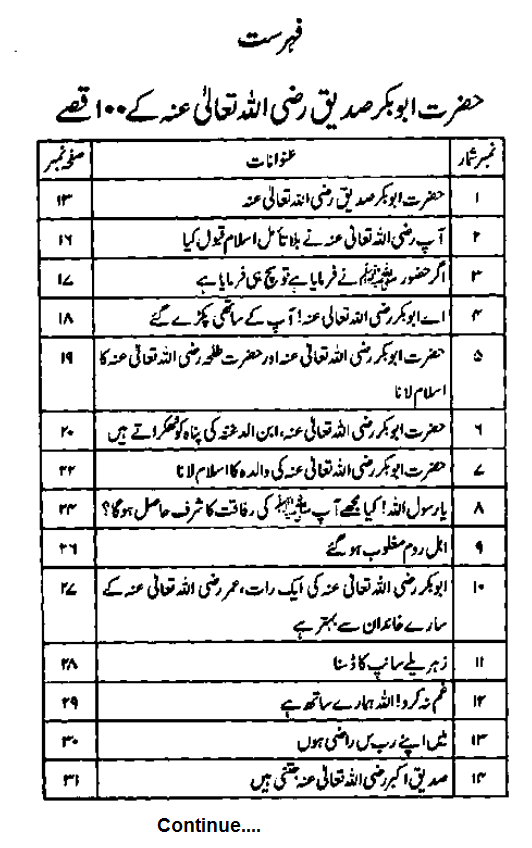 فہرست
حضرت ابوبکر صدیق رضی اللہ تعالیٰ عنہ کے ۱۰۰ قصے
نمبر شمار عنوانات صفحہ نمبر
۱ حضرت ابوبکر صدیق رضی اللہ تعالیٰ عنہ ۱۳
۲ آپ رضی اللہ تعالیٰ عنہ نے بلا تأمل اسلام قبول کیا ۱۶
۳ اگر حضور ﷺ نے فرمایا ہے تو سچ ہی فرمایا ہے ۱۷
۴ اے ابوبکر رضی اللہ تعالیٰ عنہ! آپ کے ساتھی پکڑے گئے ۱۸
۵ حضرت ابوبکر رضی اللہ تعالیٰ عنہ اور حضرت طلحہ رضی اللہ تعالیٰ عنہ کا ۱۹
اسلام لانا
۶ حضرت ابوبکر رضی اللہ تعالیٰ عنہ، ابن الدغنہ کی پناہ کو ٹھکراتے ہیں ۲۰
۷ حضرت ابوبکر رضی اللہ تعالیٰ عنہ کی والدہ کا اسلام لانا ۲۲
۸ یا رسول اللہ! کیا مجھے آپ ﷺ کی رفاقت کا شرف حاصل ہوگا؟ ۲۴
۹ اہل روم مغلوب ہو گئے ۲۶
۱۰ ابوبکر رضی اللہ تعالیٰ عنہ کی ایک رات، عمر رضی اللہ تعالیٰ عنہ کے ۲۷
سارے خاندان سے بہتر ہے
۱۱ زہریلے سانپ کا ڈسنا ۲۸
۱۲ غم نہ کرو! اللہ ہمارے ساتھ ہے ۲۹
۱۳ میں اپنے رب س راضی ہوں ۳۰
۱۴ صدیق اکبر رضی اللہ تعالیٰ عنہ جنتی ہیں ۳۱
Continue....